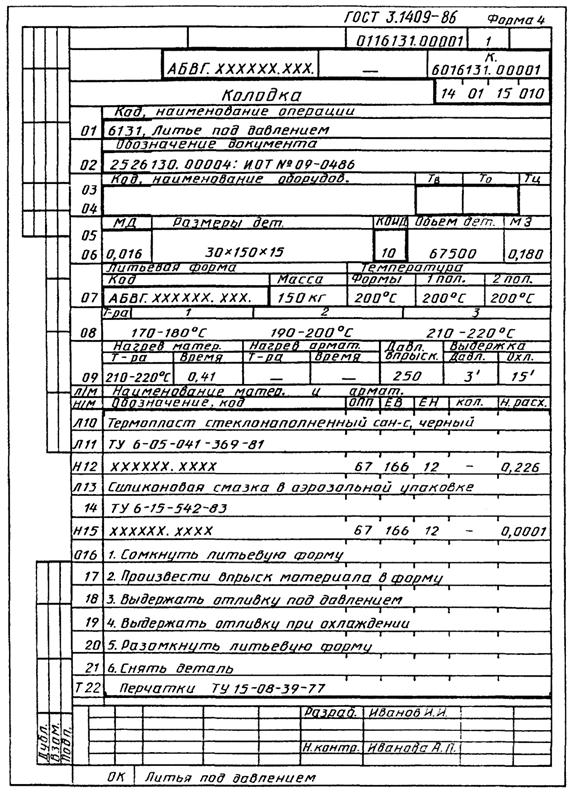 ГОСТ 3.1409-86 Форма 4
0116131.00001 1
АБВГ. ХХХХХХ. ХХХ. — К. 6016131.00001
Колодка 14 01 15 010
Код, наименование операции
01 6131, Литье под давлением
Обозначение документа
02 2526130. 00004: ИОТ № 09-0486
Код, наименование оборудов. Тв То Тц
03
04
МД Размеры дет. КОИД Объем дет. МЗ
05
06 0,016 30×150×15 10 67500 0,180
Литьевая форма Температура
Код Масса Формы 1 пол. 2 пол.
07 АБВГ. ХХХХХХ. ХХХ. 150 кг 200°С 200°С 200°С
Т-ра 1 2 3
08 170-180°С 190-200°С 210-220°С
Нагрев матер. Нагрев армат. Давл. впрыск. Выдержка
Т-ра Время Т-ра Время Давл. Охл.
09 210-220°С 0,41 — — 250 3' 15'
Л/М Наименование матер. и армат.
Н/М Обозначение, код ОПП ЕВ ЕН кол. Н.расх.
Л10 Термопласт стеклонаполненный сан-с, черный
Л11 ТУ 6-05-041-369-81
Н12 ХХХХХХ. ХХХХ 67 166 12 - 0,226
Л13 Силиконовая смазка в аэрозольной упаковке
14 ТУ 6-15-542-83
Н15 ХХХХХХ. ХХХХ 67 166 12 - 0,0001
О16 1. Сомкнуть литьевую форму
17 2. Произвести впрыск материала в форму
18 3. Выдержать отливку под давлением
19 4. Выдержать отливку при охлаждении
20 5. Разомкнуть литьевую форму
21 6. Снять деталь
Т22 Перчатки ТУ 15-08-39-77
Разраб. Иванов И.И.
Н.контр. Иванова А.П.
Дубл.
Взам.
Подп.
ОК Литья под давлением